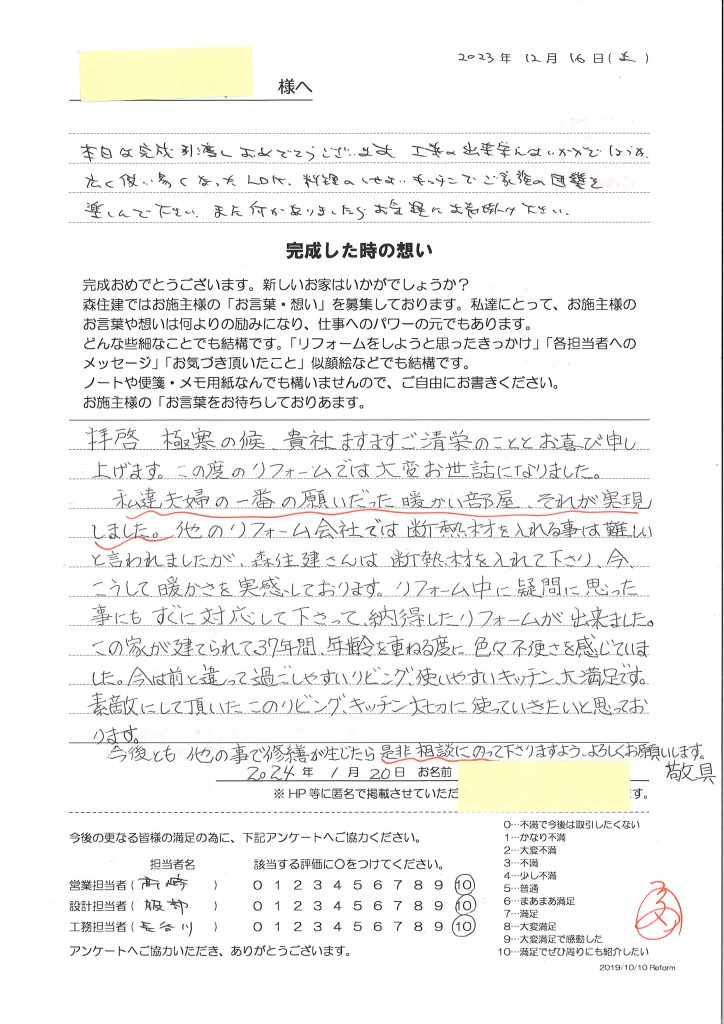 2023年 12月 16日(土)
様へ
本日は完成引渡しおめでとうございます。工事の出来栄えはいかがでしょうか。
広く使い易くなったLDK、料理のしやすいキッチンでご家族の団欒を
楽しんで下さい。また何かありましたらお気軽にお声掛け下さい。
完成した時の想い
完成おめでとうございます。新しいお家はいかがでしょうか？
森住建ではお施主様の「お言葉・想い」を募集しております。私達にとって、お施主様の
お言葉や想いは何よりの励みになり、仕事へのパワーの元でもあります。
どんな些細なことでも結構です。「リフォームをしようと思ったきっかけ」「各担当者への
メッセージ」「お気づき頂いたこと」似顔絵などでも結構です。
ノートや便箋・メモ用紙なんでも構いませんので、ご自由にお書きください。
お施主様の「お言葉をお待ちしておりあます。
拝啓 極寒の候、貴社ますますご清栄のこととお喜び申し
上げます。この度のリフォームでは大変お世話になりました。
私達夫婦の一番の願いだった暖かい部屋、それが実現
しました。他のリフォーム会社では断熱材を入れる事は難しい
と言われましたが、森住建さんは断熱材を入れて下さり、今、
こうして暖かさを実感しております。リフォーム中に疑問に思った
事にもすぐに対応して下さって、納得したリフォームが出来ました。
この家が建てられて37年間、年齢を重ねる度に色々不便さを感じていま
した。今は前と違って過ごしやすいリビング、使いやすいキッチン、大満足です。
素敵にして頂いたこのリビング、キッチン大切に使っていきたいと思ってお
ります。
今後とも他の事で修繕が生じたら是非相談にのって下りますよう、よろしくお願いします。
敬具
2024年 1月 20日 お名前
※HP等に匿名で掲載させていただ ます。
今後の更なる皆様の満足の為に、下記アンケートへご協力ください。
担当者名 該当する評価に○をつけてください。
営業担当者(高崎) 0 1 2 3 4 5 6 7 8 9 10
設計担当者(服部) 0 1 2 3 4 5 6 7 8 9 10
工務担当者(長谷川) 0 1 2 3 4 5 6 7 8 9 10
アンケートへご協力いただき、ありがとうございます。
0…不満で今後は取引したくない
1…かなり不満
2…大変不満
3…不満
4…少し不満
5…普通
6…まあまあ満足
7…満足
8…大変満足
9…大変満足で感動した
10…満足でぜひ周りにも紹介したい
2019/10/10 Reform